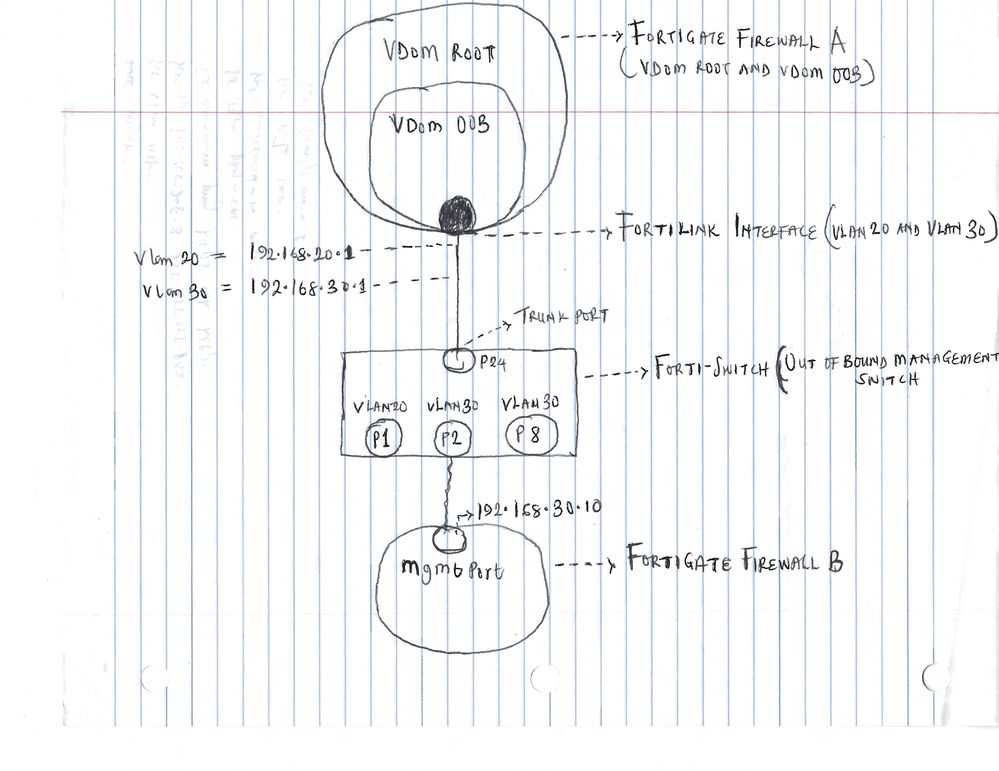 VDOM ROOT
VDom OOB
FORTIGATE FIREWALL A
(VDOM ROOT AND VDOM OOB)
FORTILINK INTERFACE (VLAN 20 AND VLAN 30)
Vlan 20 = 192.168.20.1
Vlan 30 = 192.168.30.1
TRUNK PORT
P24
FORTI-SWITCH (OUT OF BOUND MANAGEMENT
SWITCH
VLAN20 VLAN30 VLAN30
P1 P2 P8
192.168.30.10
mgmt Port
FORTIGATE FIREWALL B